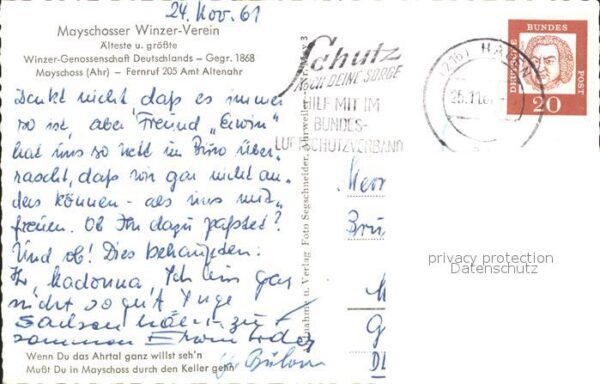 24. Nov. 61
Mayschosser Winzer-Verein
Älteste u. größte
Winzer-Genossenschaft Deutschlands – Gegr. 1868
Mayschoss (Ahr) – Fernruf 205 Amt Altenahr
Denkt nicht, daß es immer
so ist, aber Freund „Erwin"
hat uns so nett im Büro über-
rascht, daß wir gar nicht an-
ders können – als uns mit-
freuen. Ob Ihr dazu paßtet?
Und ob! Dies behaupten:
Ihr, Madonna, Ich bin gar
nicht so gut
zusammen
Wenn Du das Ahrtal ganz willst seh'n
Mußt Du in Mayschoss durch den Keller gehn
Aufnahme u. Verlag Foto Segschneider, Ahrweiler
Schutz
NOCH DEINE SORGE
HILF MIT IM
BUNDES-
LUFTSCHUTZVERBAND
25.11.61
DEUTSCHE BUNDES POST
20
Herr
privacy protection
Datenschutz